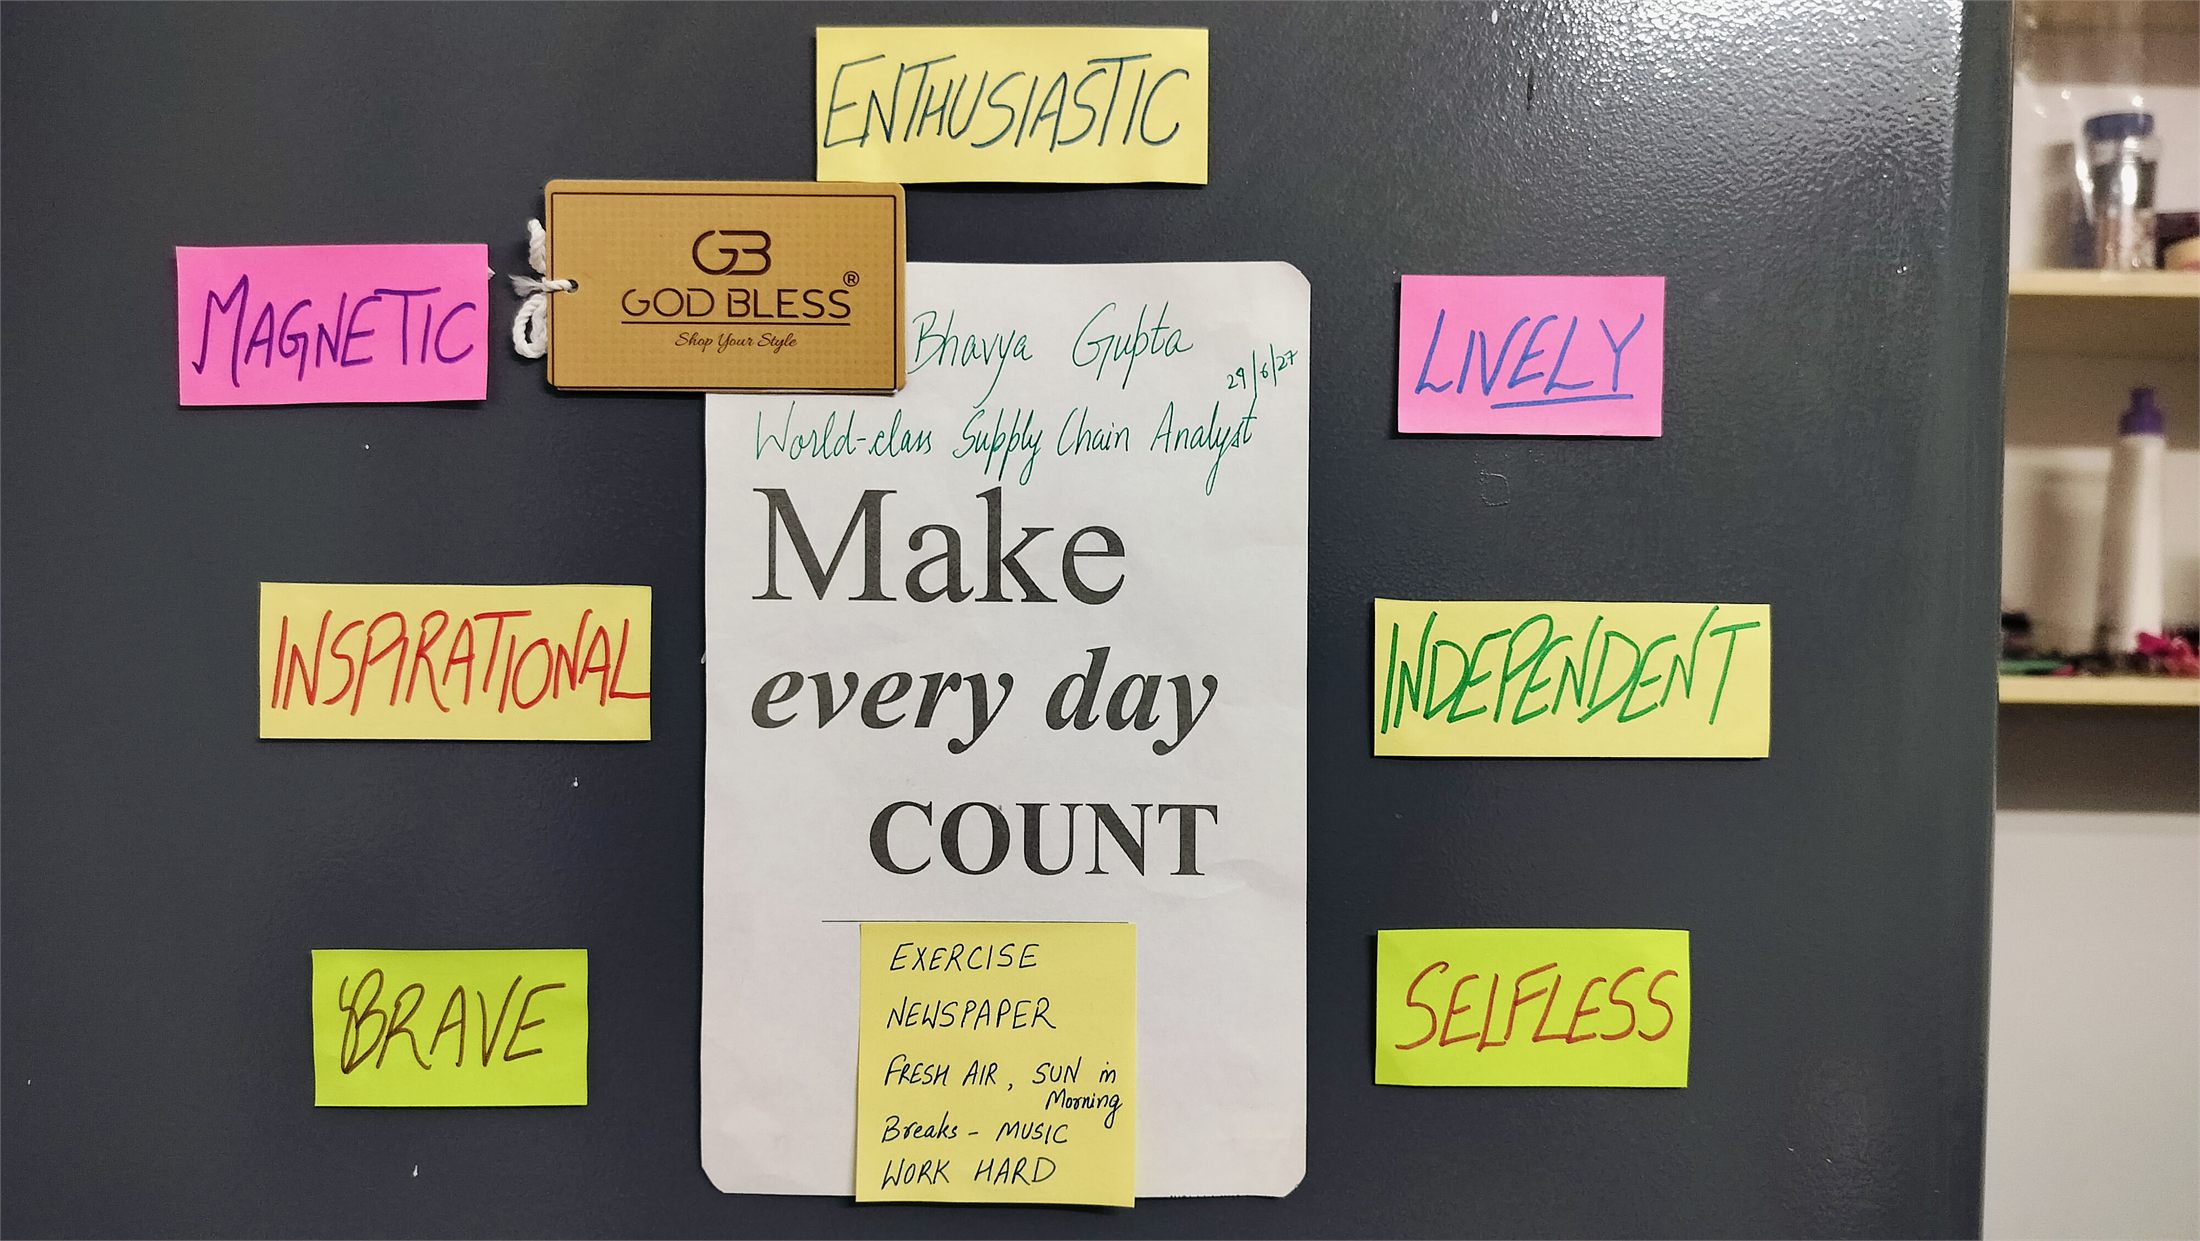 ENTHUSIASTIC
MAGNETIC
GB
GOD BLESS®
Shop Your Style
Bhavya Gupta
29/6/27
World-class Supply Chain Analyst
LIVELY
Make
every day
COUNT
INSPIRATIONAL
INDEPENDENT
BRAVE
SELFLESS
EXERCISE
NEWSPAPER
FRESH AIR, SUN in
Morning
Breaks - MUSIC
WORK HARD